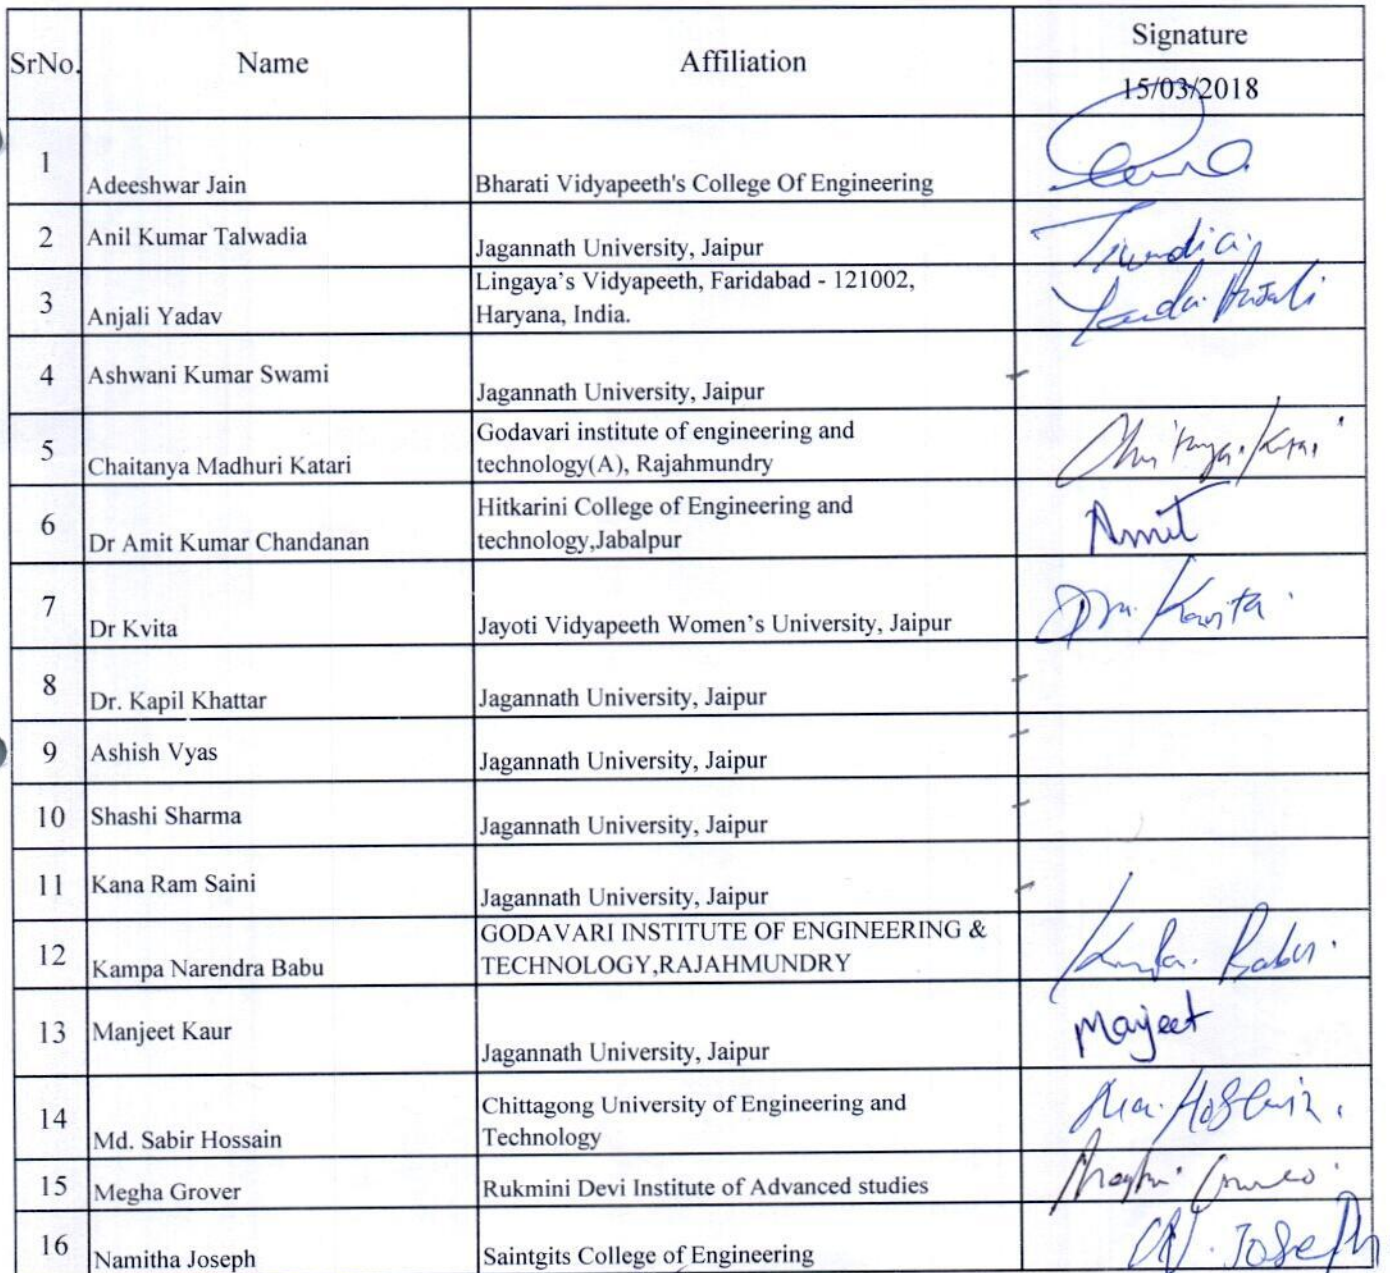 SrNo. Name Affiliation Signature
15/03/2018
1 Adeeshwar Jain Bharati Vidyapeeth's College Of Engineering
2 Anil Kumar Talwadia Jagannath University, Jaipur
3 Anjali Yadav Lingaya's Vidyapeeth, Faridabad - 121002,
Haryana, India.
4 Ashwani Kumar Swami Jagannath University, Jaipur
5 Chaitanya Madhuri Katari Godavari institute of engineering and
technology(A), Rajahmundry
6 Dr Amit Kumar Chandanan Hitkarini College of Engineering and
technology,Jabalpur Amit
7 Dr Kvita Jayoti Vidyapeeth Women's University, Jaipur Kavita
8 Dr. Kapil Khattar Jagannath University, Jaipur
9 Ashish Vyas Jagannath University, Jaipur
10 Shashi Sharma Jagannath University, Jaipur
11 Kana Ram Saini Jagannath University, Jaipur
12 Kampa Narendra Babu GODAVARI INSTITUTE OF ENGINEERING &
TECHNOLOGY,RAJAHMUNDRY Babu
13 Manjeet Kaur Jagannath University, Jaipur Manjeet
14 Md. Sabir Hossain Chittagong University of Engineering and
Technology
15 Megha Grover Rukmini Devi Institute of Advanced studies
16 Namitha Joseph Saintgits College of Engineering N. Joseph